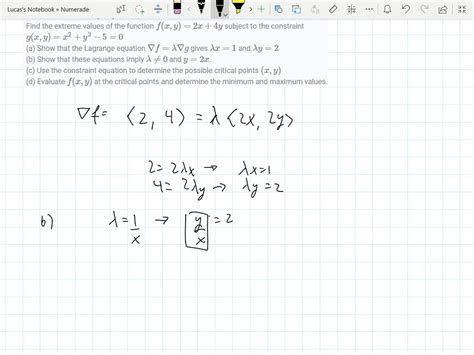 Lucas's Notebook » Numerade
Find the extreme values of the function f(x, y) = 2x + 4y subject to the constraint
g(x, y) = x² + y² − 5 = 0
(a) Show that the Lagrange equation ∇f = λ∇g gives λx = 1 and λy = 2
(b) Show that these equations imply λ ≠ 0 and y = 2x.
(c) Use the constraint equation to determine the possible critical points (x, y)
(d) Evaluate f(x, y) at the critical points and determine the minimum and maximum values.
∇f = ⟨2, 4⟩ = λ ⟨2x, 2y⟩
2 = 2λx → λx = 1
4 = 2λy → λy = 2
b) λ = 1/x → y/x = 2